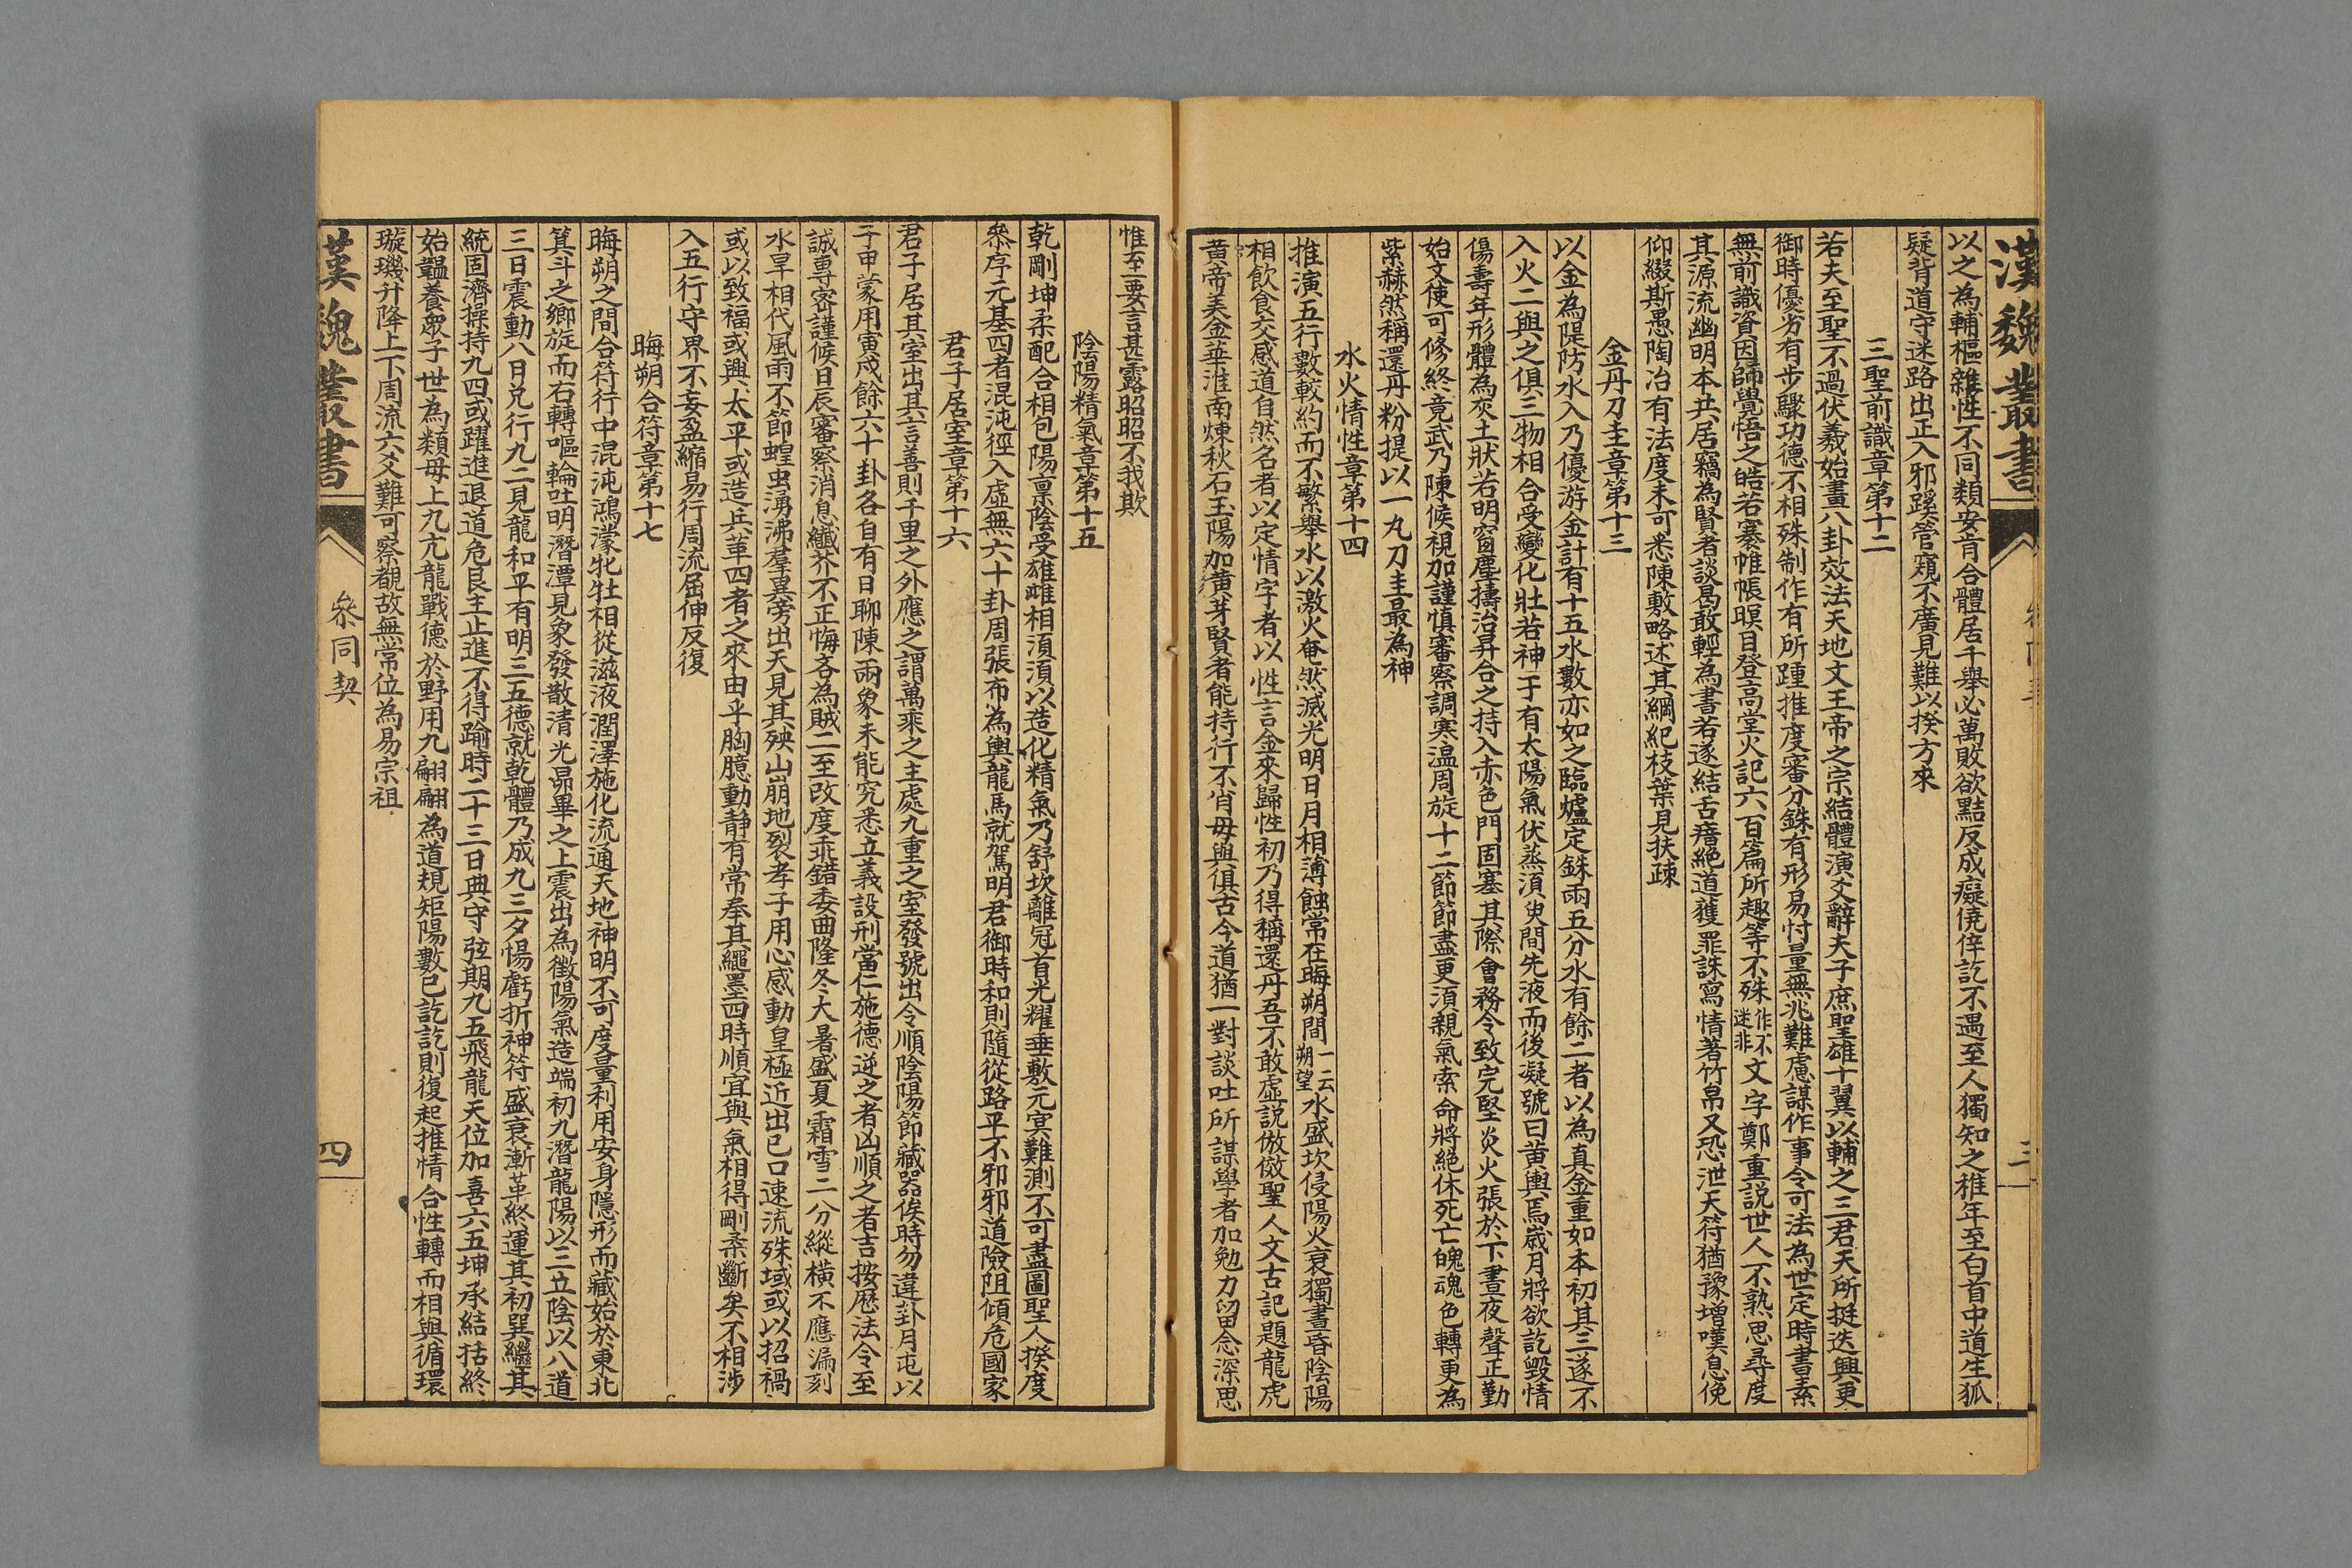 漢魏叢書
三
以之為輔樞雜性不同類安肯合體居千舉必萬敗欲黠反成癡僥倖訖不遇至人獨知之稚年至白首中道生狐
疑背道守迷路出正入邪蹊管窺不廣見難以揆方來
三聖前識章第十二
若夫至聖不過伏羲始畫八卦效法天地文王帝之宗結體演爻辭夫子庶聖雄十翼以輔之三君天所挺迭興更
御時優劣有步驟功德不相殊制作有所踵推度審分銖有形易忖量無兆難慮謀作事令可法為世定時書素
無前識資因師覺悟之皓若褰帷帳瞑目登高堂火記六百篇所趣等不殊作不迷非文字鄭重說世人不熟思尋度
其源流幽明本共居竊為賢者談曷敢輕為書若遂結舌瘖絕道獲罪誅寫情著竹帛又恐泄天符猶豫增嘆息俛
仰綴斯愚陶冶有法度未可悉陳敷略述其綱紀枝葉見扶疎
金丹刀圭章第十三
以金為隄防水入乃優游金計有十五水數亦如之臨爐定銖兩五分水有餘二者以為真金重如本初其三遂不
入火二與之俱三物相合受變化壯若神于有太陽氣伏蒸湏臾間先液而後凝號曰黃輿焉嵗月將欲訖毀情
傷壽年形體為灰土狀若明窗塵擣治昇合之持入赤色門固塞其際會務令致完堅炎火張於下晝夜聲正勤
始文使可修終竟武乃陳候視加謹慎審察調寒温周旋十二節節盡更湏親氣索命將絕休死亡魄魂色轉更為
紫赫然稱還丹粉提以一丸刀圭最為神
水火情性章第十四
推演五行數較約而不繁舉水以激火奄然滅光明日月相薄蝕常在晦朔間一云朔望水盛坎侵陽火衰獨晝昏陰陽
相飲食交感道自然名者以定情字者以性言金來歸性初乃得稱還丹吾不敢虛說倣傚聖人文古記題龍虎
黃帝美金華淮南煉秋石玉陽加黃芽賢者能持行不肖毋與俱古今道猶一對談吐所謀學者加勉力留念深思
惟至要言甚露昭昭不我欺
陰陽精氣章第十五
乾剛坤柔配合相包陽稟陰受雄雌相湏湏以造化精氣乃舒坎離冠首光耀垂敷元冥難測不可畫圖聖人揆度
叅序元基四者混沌徑入虛無六十卦周張布為輿龍馬就駕明君御時和則隨從路平不邪邪道險阻傾危國家
君子居室章第十六
君子居其室出其言善則千里之外應之謂萬乘之主處九重之室發號出令順陰陽節藏器俟時勿違卦月屯以
子申蒙用寅戍餘六十卦各自有日聊陳兩象未能究悉立義設刑當仁施德逆之者凶順之者吉按厯法令至
誠專密謹候日辰審察消息纖芥不正悔吝為賊二至改度乖錯委曲隆冬大暑盛夏霜雪二分縱橫不應漏刻
水旱相代風雨不節蝗虫湧沸羣異旁出天見其殃山崩地裂孝子用心感動皇極近出已口速流殊域或以招禍
或以致福或興太平或造兵革四者之來由乎胸臆動静有常奉其繩墨四時順宜與氣相得剛柔斷矣不相涉
入五行守界不妄盈縮易行周流屈伸反復
晦朔合符章第十七
晦朔之間合符行中混沌鴻濛牝牡相從滋液潤澤施化流通天地神明不可度量利用安身隱形而藏始於東北
箕斗之鄉旋而右轉嘔輪吐明潛潭見象發散清光昴畢之上震出為徵陽氣造端初九潛龍陽以三立陰以八道
三日震動八日兌行九二見龍和平有明三五德就乾體乃成九三夕惕虧折神符盛衰漸革終還其初巽繼其
統固濟操持九四或躍進退道危艮主止進不得踰時二十三日典守弦期九五飛龍天位加喜六五坤承結括終
始韞養衆子世為類母上九亢龍戰德於野用九翩翩為道規矩陽數已訖訖則復起推情合性轉而相與循環
璇璣升降上下周流六爻難可察覩故無常位為易宗祖
漢魏叢書
叅同契
四